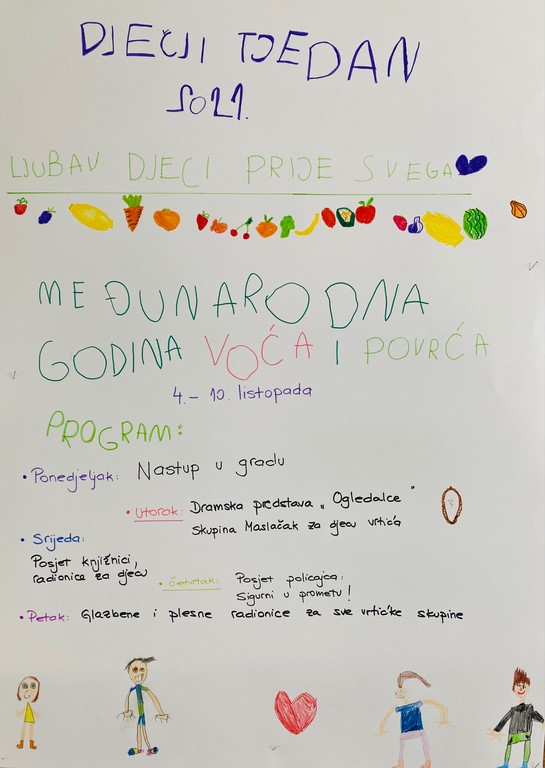 DJEČJI TJEDAN
2021.
LJUBAV DJECI PRIJE SVEGA
MEĐUNARODNA
GODINA VOĆA I POVRĆA
4. - 10. listopada
PROGRAM:
• Ponedjeljak: Nastup u gradu
• Utorak: Dramska predstava „ Ogledalce "
Skupina Maslačak za djecu vrtića
• Srijeda:
Posjet knjižnici,
radionice za djecu
• Četvrtak: Posjet policajca:
Sigurni u prometu!
• Petak: Glazbene i plesne radionice za sve vrtićke skupine